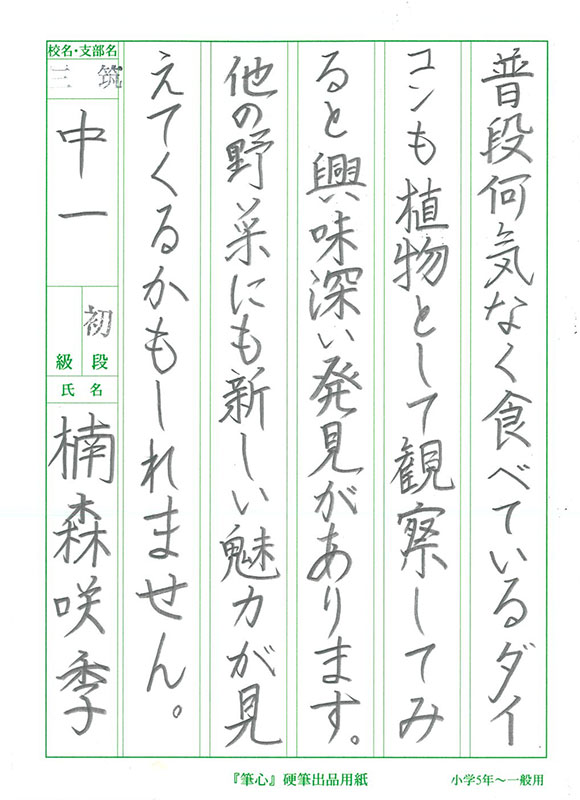 普段何気なく食べているダイ
コンも植物として観察してみ
ると興味深い発見があります。
他の野菜にも新しい魅力が見
えてくるかもしれません。
校名・支部名
三筑
中一
初
級 段
氏名
楠森咲季
『筆心』硬筆出品用紙
小学5年〜一般用